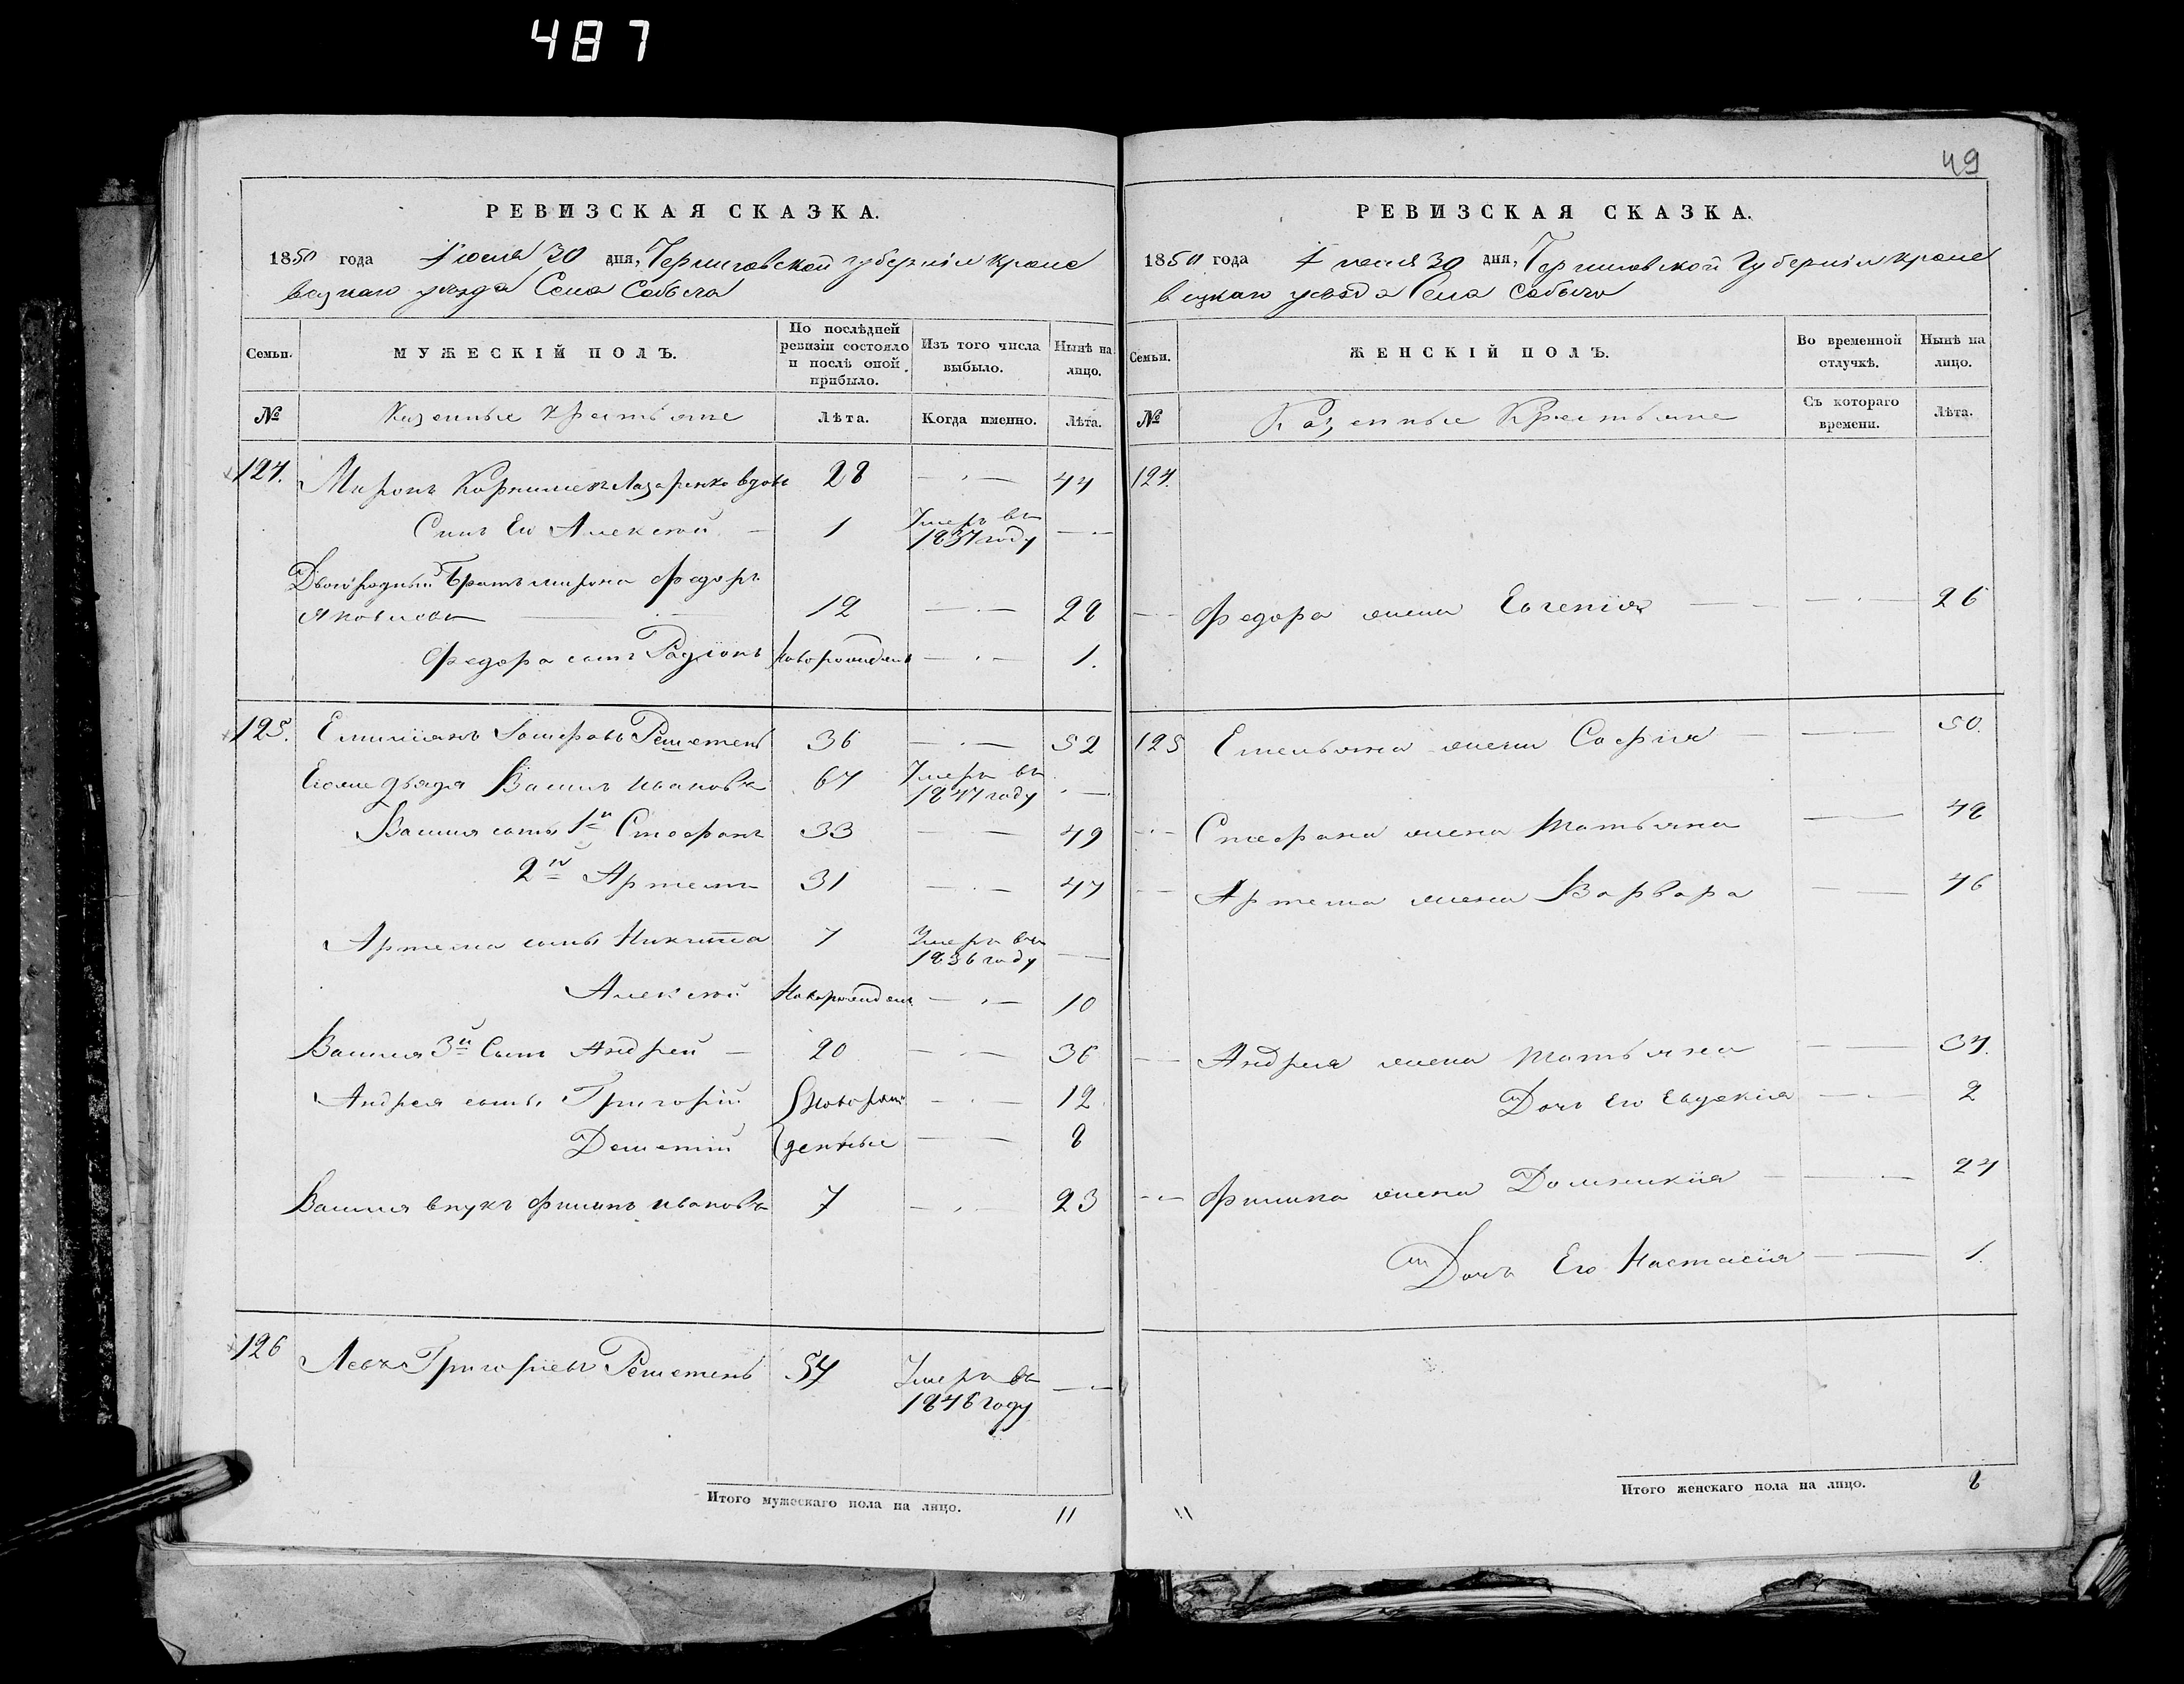 487
49
РЕВИЗСКАЯ СКАЗКА.
1850 года Іюня 30 дня, Черниговской губерніи Кроле
вецкаго уезда Села Собыча
Семьи.
МУЖЕСКІЙ ПОЛЪ.
По послѣдней ревизіи состояло и послѣ оной прибыло.
Изъ того числа выбыло.
Нынѣ на лицо.
№
Казенные крестьяне
Лѣта.
Когда именно.
Лѣта.
124. Миронъ Корниліевъ Лазаренко вдовъ 28 44
Сынъ Его Алексѣй 1 Умеръ въ 1837 году
Двоюродный Братъ мирона Федоръ
Яковлевъ 12 28
Федора сынъ Радіонъ новорожденъ 1.
125. Емиліянъ Решетень 36 52
Егоже дядя Василь Ивановъ 67 Умеръ въ 1847 году
Василя сыны 1й Стефанъ 33 49
2й Артемъ 31 47
Артема сыны Никита 7 Умеръ въ 1836 году
Алексѣй Новорожденъ 10
Василя 3й Сынъ Андрей 20 36
Андрея сыны Григорій Новорож 12
Дементій денные 8
Василя внукъ Филипъ Ивановъ 7 23
126 Левъ Григорьевъ Решетень 54 Умеръ въ 1846 году
Итого мужескаго пола на лицо. 11
РЕВИЗСКАЯ СКАЗКА.
1850 года Іюня 30 дня, Черниговской Губерніи Кроле
вецкаго уезда Села Собыча
Семьи.
ЖЕНСКІЙ ПОЛЪ.
Во временной отлучкѣ.
Нынѣ на лицо.
№
Казенные Крестьяне
Съ котораго времени.
Лѣта.
124.
Федора жена Евгенія 26
125 Емельяна жена Софія 50.
Стефана жена Татьяна 48
Артема жена Варвара 46
Андрея жена Татьяна 34.
Дочь Его Евдокія 2
Филипа жена Домникія 24
Дочь Его Настасія 1.
Итого женскаго пола на лицо. 8
11